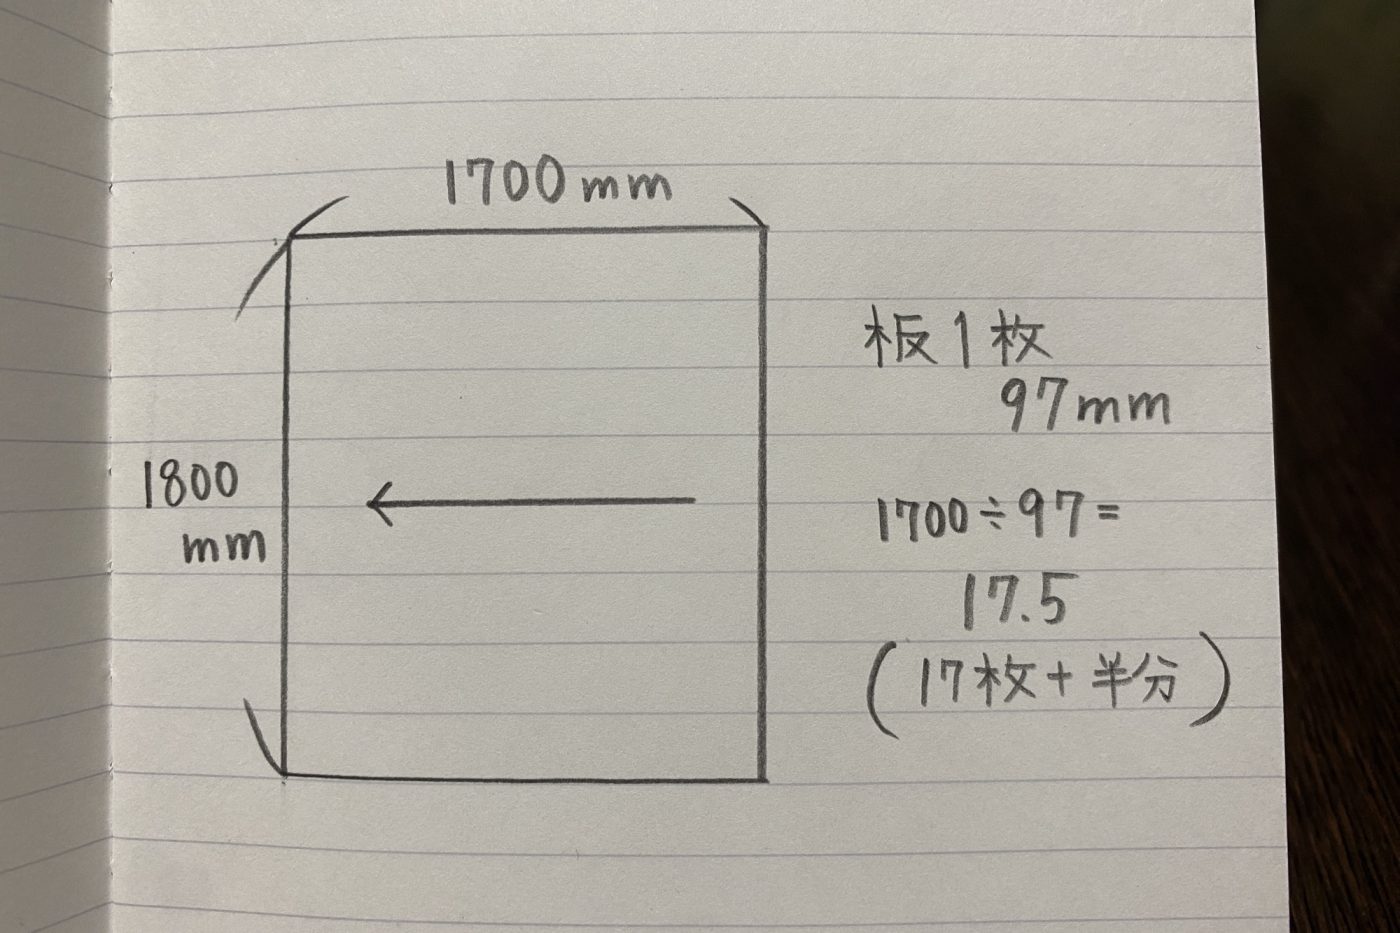 1700mm
1800
mm
板1枚
97mm
1700÷97=
17.5
(17枚+半分)